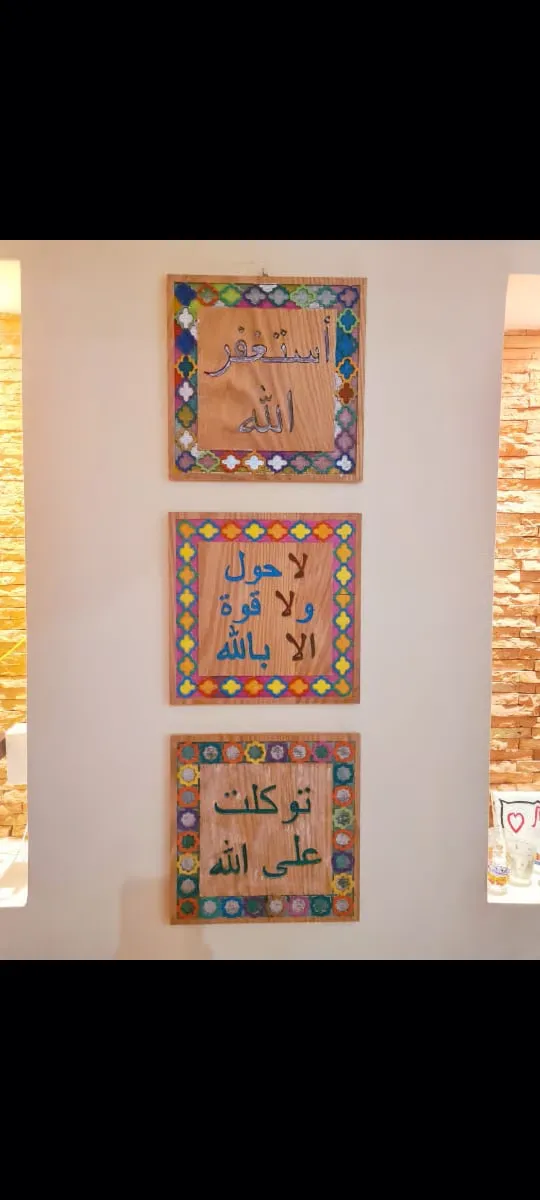 أستغفر
الله
لا حول
ولا قوة
الا بالله
توكلت
على الله